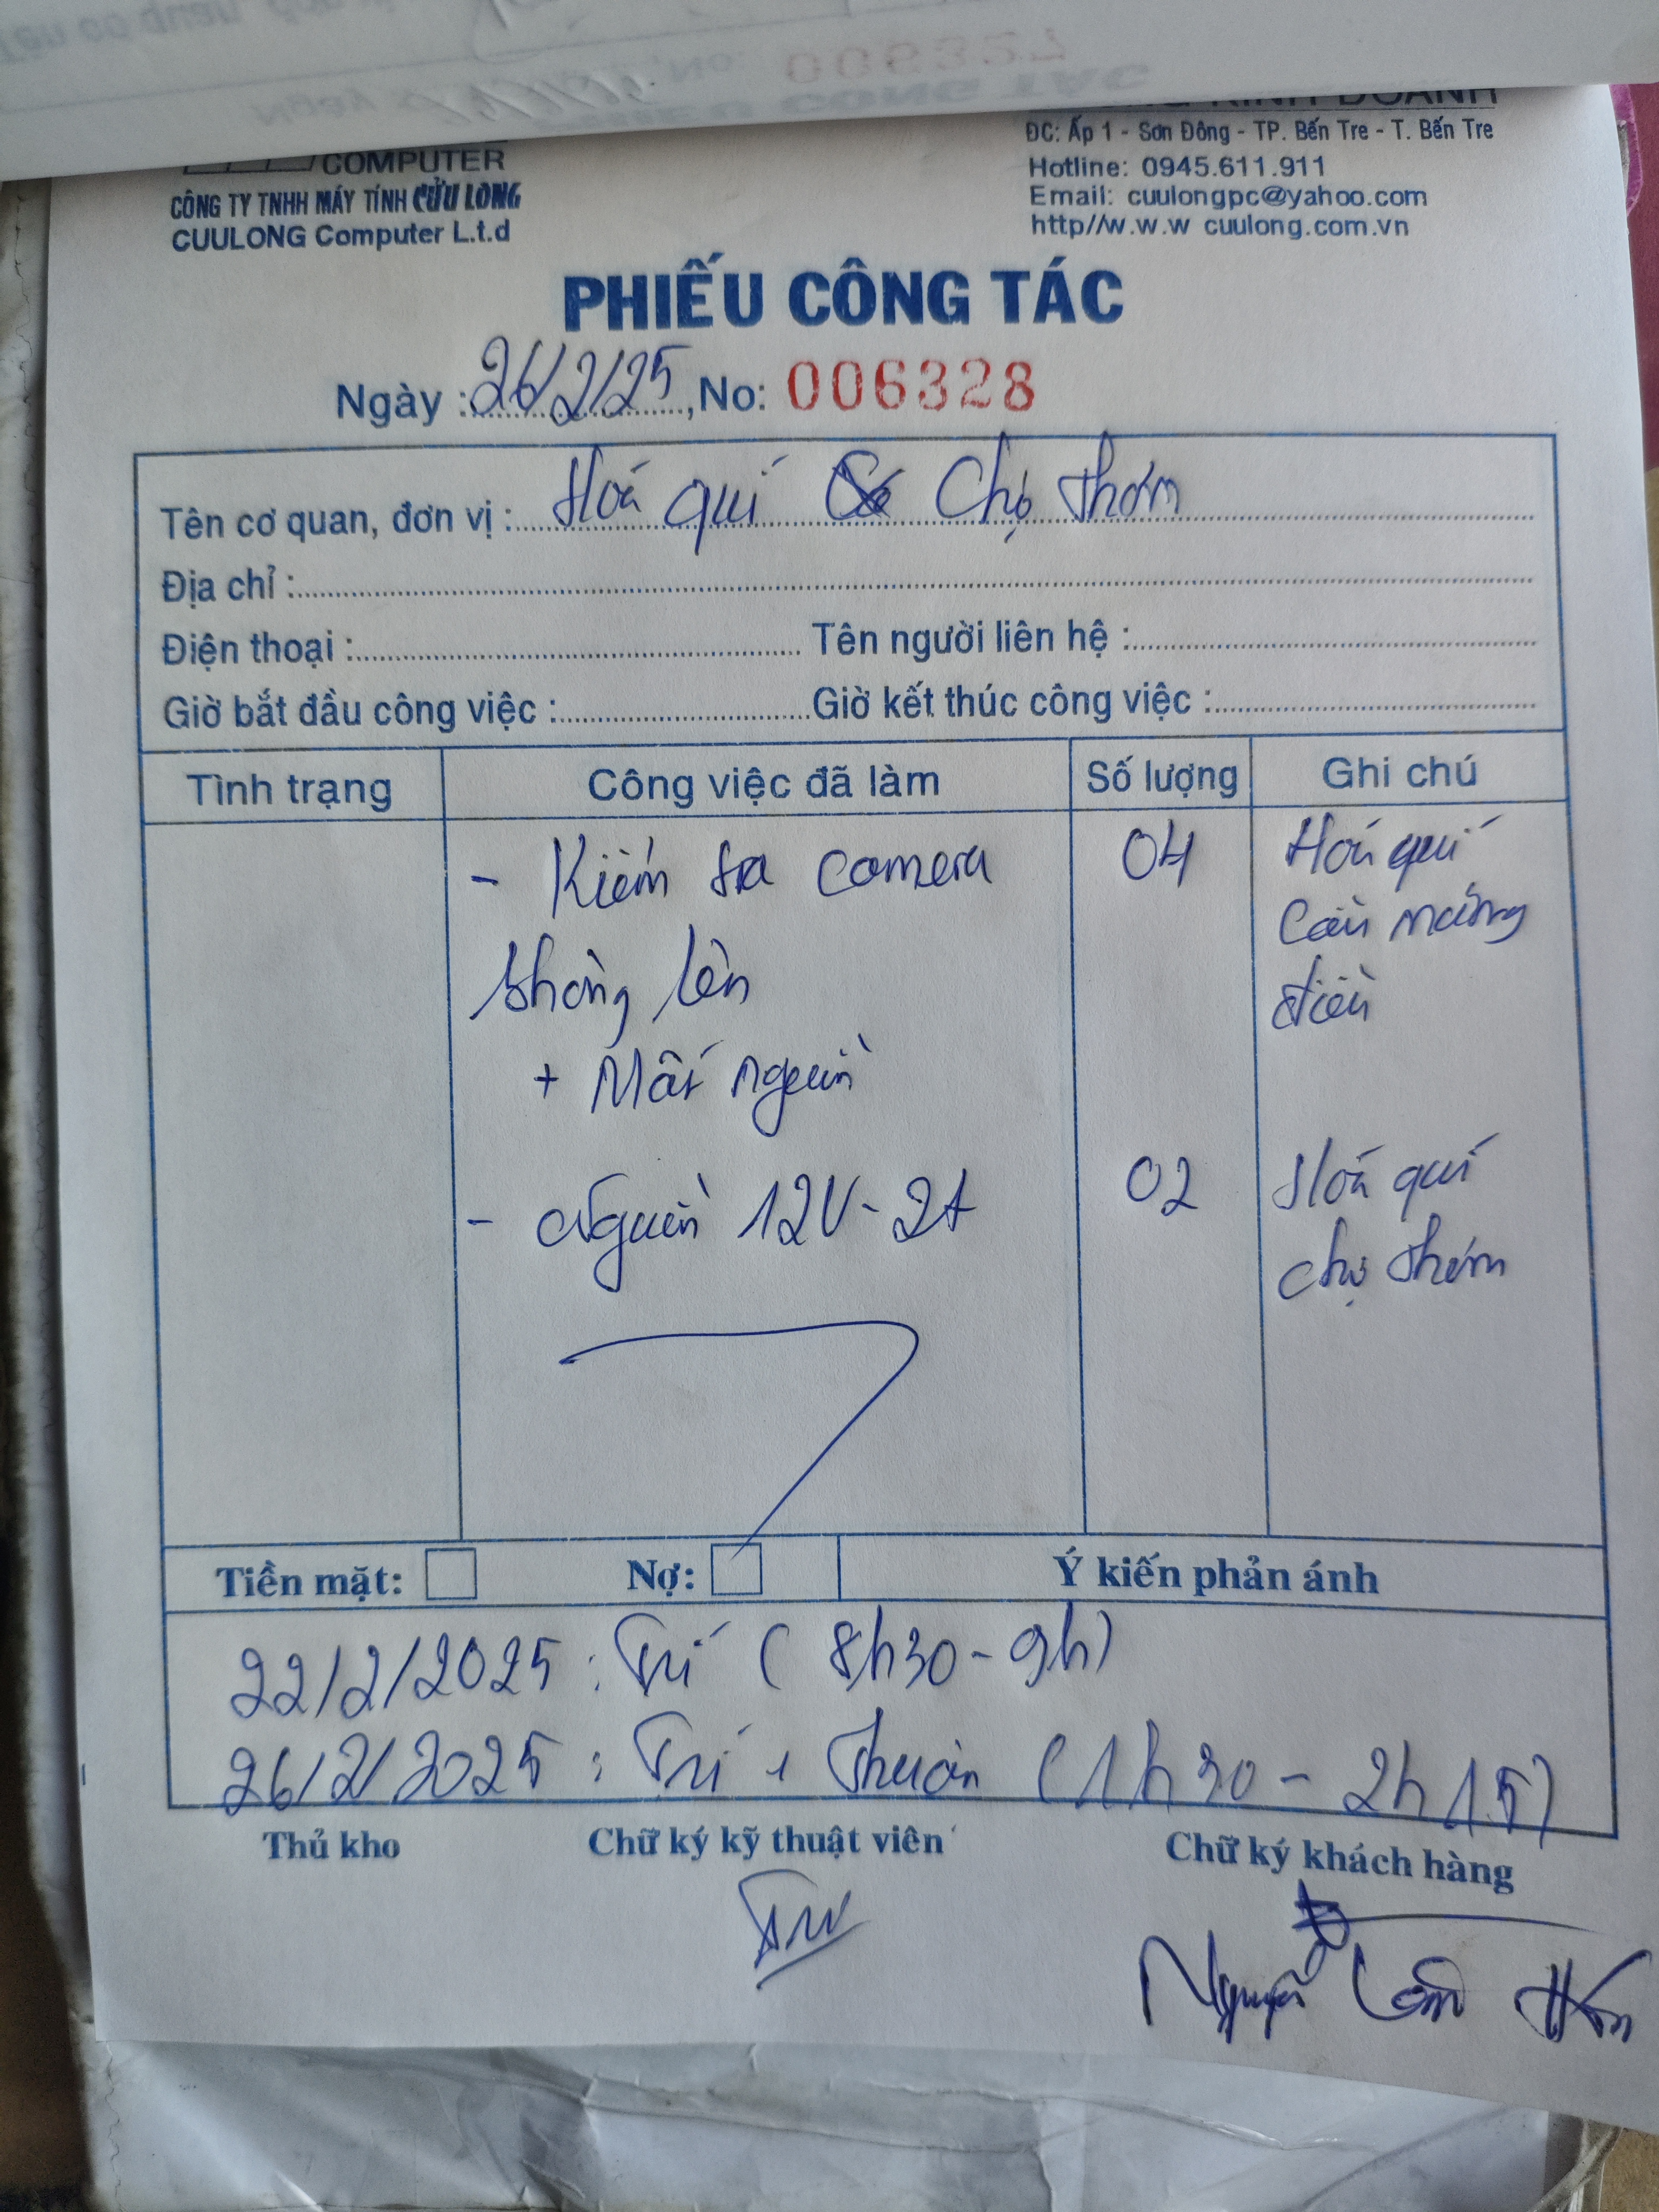 No: 006327
COMPUTER
CÔNG TY TNHH MÁY TÍNH CỬU LONG
CUULONG Computer L.t.d
ĐC: Ấp 1 - Sơn Đông - TP. Bến Tre - T. Bến Tre
Hotline: 0945.611.911
Email: cuulongpc@yahoo.com
http//w.w.w cuulong.com.vn
PHIẾU CÔNG TÁC
Ngày : 26/2/25, No: 006328
Tên cơ quan, đơn vị : Hoá quí Chợ Thơm
Địa chỉ :
Điện thoại : Tên người liên hệ :
Giờ bắt đầu công việc : Giờ kết thúc công việc :
Tình trạng Công việc đã làm Số lượng Ghi chú
- Kiểm tra camera 04 Hoá quí
không lên
+ Mất nguồn
- Nguồn 12V-2A 02 Hoá quí
chợ Thơm
Tiền mặt: Nợ: Ý kiến phản ánh
22/2/2025 : Trí (8h30-9h)
26/2/2025 : Trí + Thuận (1h30-2h15)
Thủ kho Chữ ký kỹ thuật viên Chữ ký khách hàng
Trí
Nguyễn